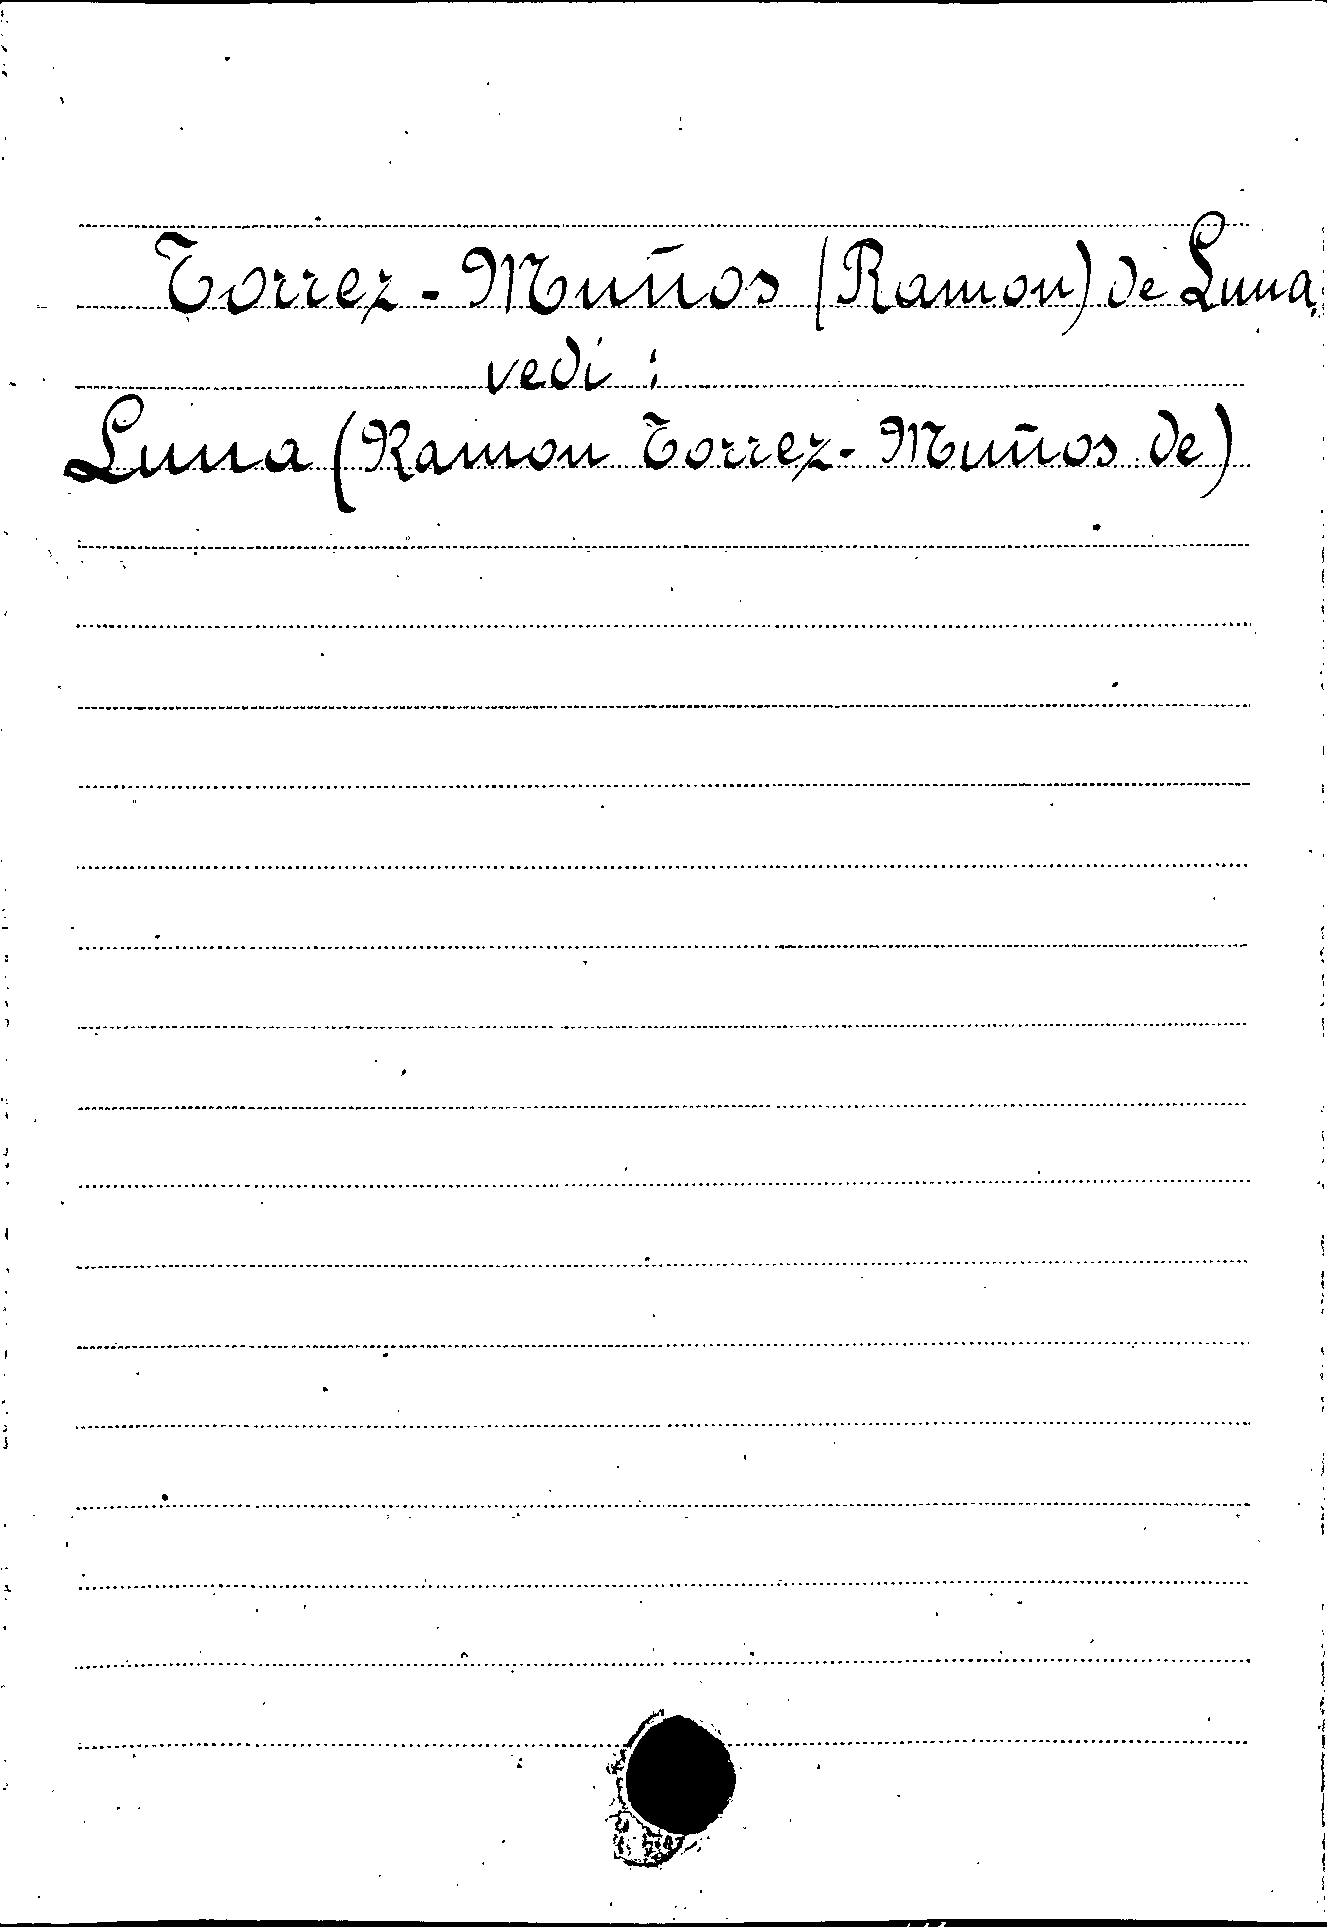 Torrez - Muños (Ramon) de Luna,
vedi :
Luna (Ramon Torrez - Muños de)